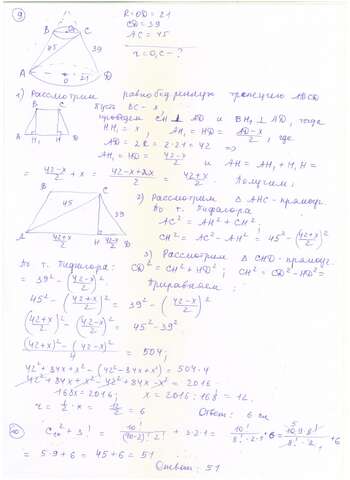 9
R = OD = 21
CD = 39
AC = 45
r = O₁C - ?
B O₁ C
45 39
A O 21 D
1) Рассмотрим равнобедренную трапецию ABCD
Пусть BC - x,
проведем CH ⊥ AD и BH₁ ⊥ AD, тогда
HH₁ = x, AH₁ = HD = (AD-x)/2, где
AD = 2R = 2·21 = 42 ⇒
AH₁ = HD = (42-x)/2 и AH = AH₁ + H₁H =
B C
A H₁ H D
= (42-x)/2 + x = (42-x+2x)/2 = (42+x)/2
Получим:
B C
45 39
A (42+x)/2 H (42-x)/2 D
2) Рассмотрим △ AHC - прямоуг.
По т. Пифагора
AC² = AH² + CH²;
CH² = AC² - AH² = 45² - ((42+x)/2)²
3) Рассмотрим △ CHD - прямоуг.
По т. Пифагора: CD² = CH² + HD²; CH² = CD² - HD² =
= 39² - ((42-x)/2)²
Приравняем:
45² - ((42+x)/2)² = 39² - ((42-x)/2)²
((42+x)/2)² - ((42-x)/2)² = 45² - 39²
((42+x)² - (42-x)²)/4 = 504;
42² + 84x + x² - (42² - 84x + x²) = 504·4
42² + 84x + x² - 42² + 84x - x² = 2016
168x = 2016; x = 2016 : 168 = 12.
r = 1/2 · x = 12/2 = 6
Ответ: 6 см
10
C₁₀² + 3! = 10!/((10-2)!·2!) + 3·2·1 = 10!/(8!·2·1) + 6 = 10·9·8!/(8!·2) + 6
5
= 5·9 + 6 = 45 + 6 = 51
Ответ: 51